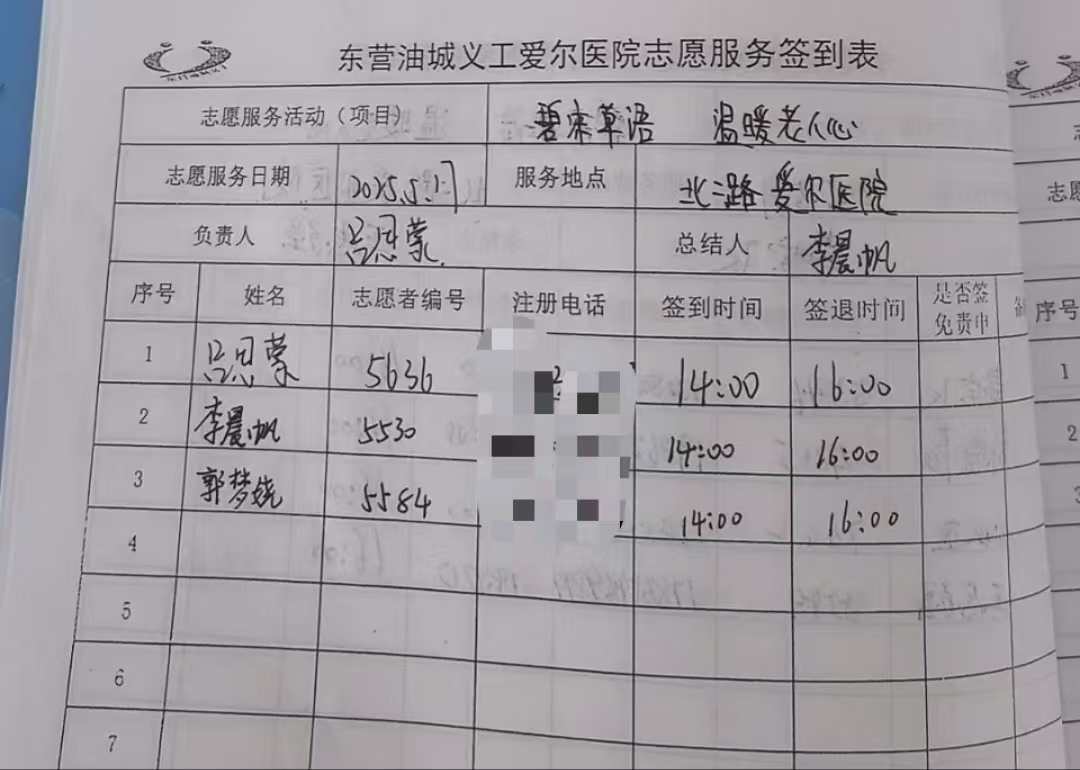 东营油城义工爱尔医院志愿服务签到表
志愿服务活动（项目） 碧宋草语 温暖老人心
志愿服务日期 2025.5.17 服务地点 北二路爱尔医院
负责人 吕思蒙 总结人 李晨帆
序号 姓名 志愿者编号 注册电话 签到时间 签退时间 是否签
免责申
1 吕思蒙 5636 14:00 16:00
2 李晨帆 5530 14:00 16:00
3 郭梦娆 5584 14:00 16:00
4
5
6
7
志愿
序号
1
2